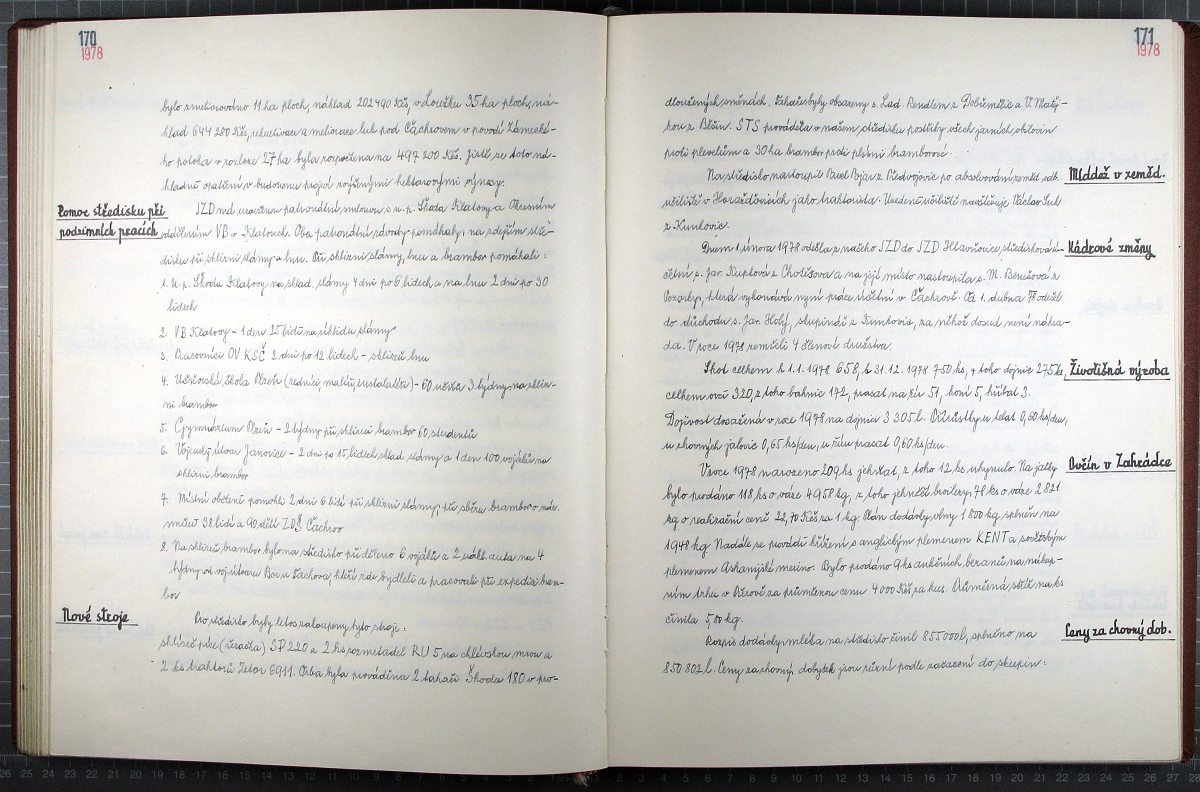 170
1978
bylo zmeliorováno 11 ha ploch, náklad 202 490 Kčs, v Loučku 35 ha ploch, ná-
klad 644 280 Kčs, rekultivace a meliorace luk pod Čachrovem v povodí Zámecké-
ho potoka v rozloze 27 ha byla rozpočtena na 497 200 Kčs. Jistě se toto ná-
kladné opatření v budoucnu projeví zvýšenými hektarovými výnosy.
Pomoc středisku při
podzimních pracích
JZD má uzavřenou patronátní smlouvu s n. p. Škoda Klatovy a Okresním
oddělením VB v Klatovech. Oba patronátní závody pomáhaly na zdejším stře-
disku při sklizni slámy a lnu. Při sklizni slámy, lnu a brambor pomáhali:
1. n. p. Škoda Klatovy na sklad. slámy 4 dny po 6 lidech a na lnu 2 dni po 30
lidech
2. VB Klatovy - 1 den 25 lidí na úklidu slámy
3. Pracovníci OV KSČ 2 dni po 12 lidech - sklizeň lnu
4. Učňovská škola Plzeň (zedníci, malíři, instalatéři) - 60 učňů 3 týdny na skliz-
ni brambor
5. Gymnázium Plzeň - 2 týdny při sklizni brambor 60 studentů
6. Vojenský útvar Janovice - 2 dni po 15 lidech sklad. slámy a 1 den 100 vojáků na
sklizni brambor
7. Místní občané pomohli 2 dni 6 lidí při sklizni slámy, při sběru brambor o ná-
směně 38 lidí a 90 dětí ZDŠ Čachrov
8. Na sklizeň brambor bylo na středisko přiděleno 6 vojáků a 2 nákl. auta na 4
týdny od voj. útvaru Bor u Tachova, kteří zde bydleli a pracovali při expedici bram-
bor
Nové stroje
Pro středisko byly letos zakoupeny tyto stroje:
sklízeč píce (řezačka) SP 220 a 2 ks rozmetadel RU 5 na chlévskou mrvu a
2 ks traktorů Zetor 6911. Orba byla prováděna 2 tahači Škoda 180 v pro-
171
1978
dloužených směnách. Tahače byly obsazeny s. Lad. Rendlem z Dobřemělic a V. Maty-
kou z Běšin. STS prováděla v našem středisku postřiky všech jarních obilovin
proti plevelům a 30 ha brambor proti plísni bramborové.
Mládež v zeměd.
Na středisko nastoupil Pavel Bojar z Předvojovic po absolvování zeměd. odb.
učiliště v Horažďovicích jako traktorista. Uvedené učiliště navštěvuje Václav Šul
z Kunkovic.
Kádrové změny
Dnem 1. února 1978 odešla z našeho JZD do JZD Hlavňovice středisková ú-
četní s. Jar. Kuptová z Chotěšova a na její místo nastoupila s. M. Benešová z
která vykonává nyní práce účetní v Čachrově. Od 1. dubna 78 odešel
do důchodu s. Jar. Holý, skupinář z Kunkovic, za něhož dosud není náhra-
da. V roce 1978 zemřeli 4 členové družstva.
Živočišná výroba
Skot celkem k 1. 1. 1978 658, k 31. 12. 1978 750 ks, z toho dojnic 275 ks,
celkem ovcí 320, z toho bahnic 172, prasat na žír 51, koní 5, hříbat 3.
Dojivost dosažená v roce 1978 na dojnici 3 305 l. Přírůstky u telat 0,60 ks/den,
u chovných jalovic 0,65 ks/den, u žíru prasat 0,60 ks/den.
Ovčín v Zahrádce
V roce 1978 narozeno 209 ks jehňat, z toho 12 ks uhynulo. Na jatky
bylo prodáno 118 ks o váze 4958 kg, z toho jehněčí broilery 78 ks o váze 2 821
kg o realizační ceně 22,70 Kčs za 1 kg. Plán dodávky vlny 1 800 kg splněn na
1948 kg. Nadále se provádí křížení s anglickým plemenem KENT a sovětským
plemenem Askanijské merino. Bylo prodáno 9 ks aukčních beranů na nákup-
ním trhu v Přerově za průměrnou cenu 4 000 Kčs za kus. Průměrná stříž na ks
činila 5,80 kg.
Ceny za chovný dob.
Rozpis dodávky mléka na středisko činil 855 000 l, splněno na
850 802 l. Ceny za chovný dobytek jsou různé podle zařazení do skupin: